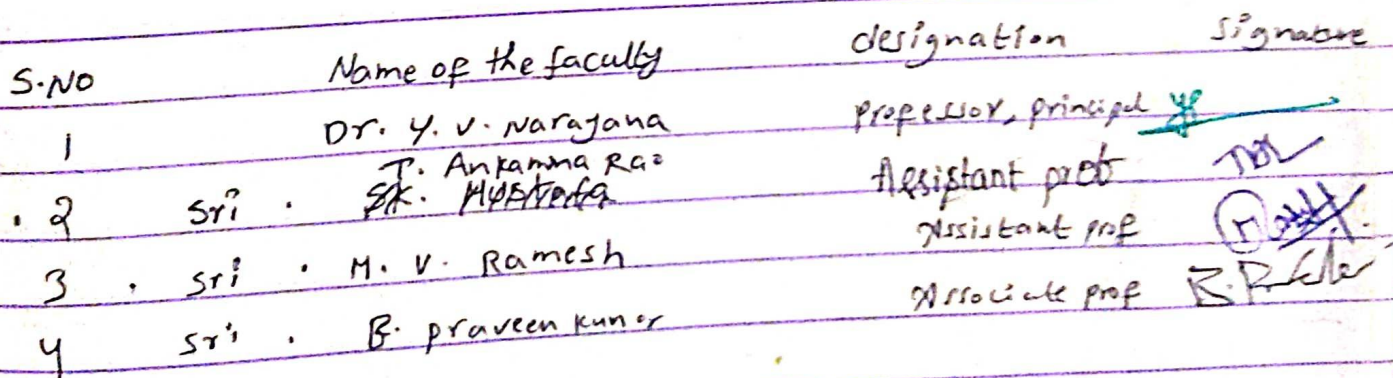 S.NO Name of the faculty designation Signature
1 Dr. Y. V. Narayana professor, principal
T. Ankamma Rao
2 Sri. SK. Assistant prof
3. Sri. M. V. Ramesh Assistant prof
4 Sri. B. praveen kumar Associate prof